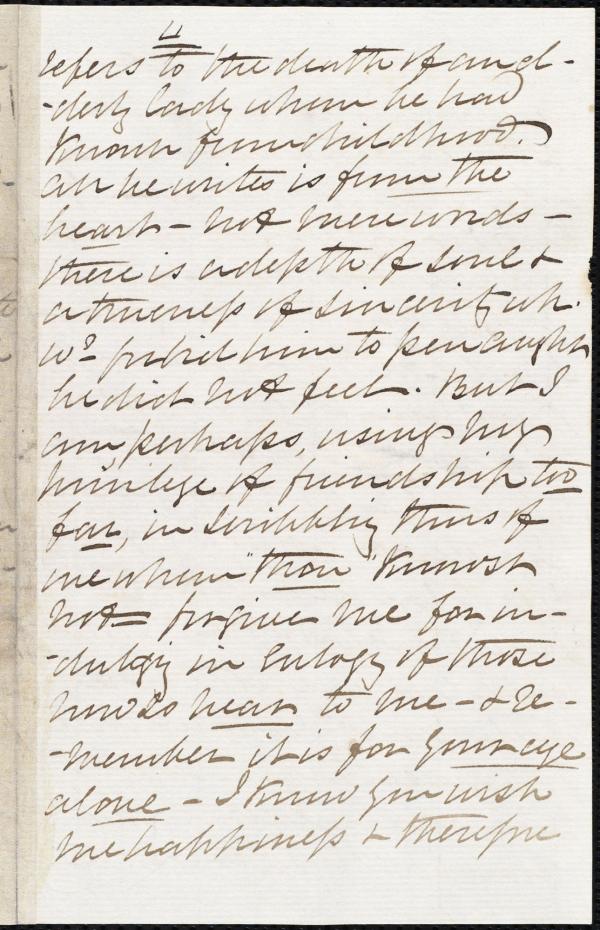 refers to the death of an el-
-derly lady whom he had
known from childhood.
All he writes is from the
heart - not mere words -
there is a depth of soul &
a trueness of sincerity wh.
wd forbid him to pen aught
he did not feel. But I
am, perhaps, using my
privilege of friendship too
far, in scribbling thus of
one whom "thou" knowst
not - forgive me for in-
-dulgg in eulogy of those
now so near to me - & re-
-member it is for your eye
alone - I know you wish
me happiness & therefore